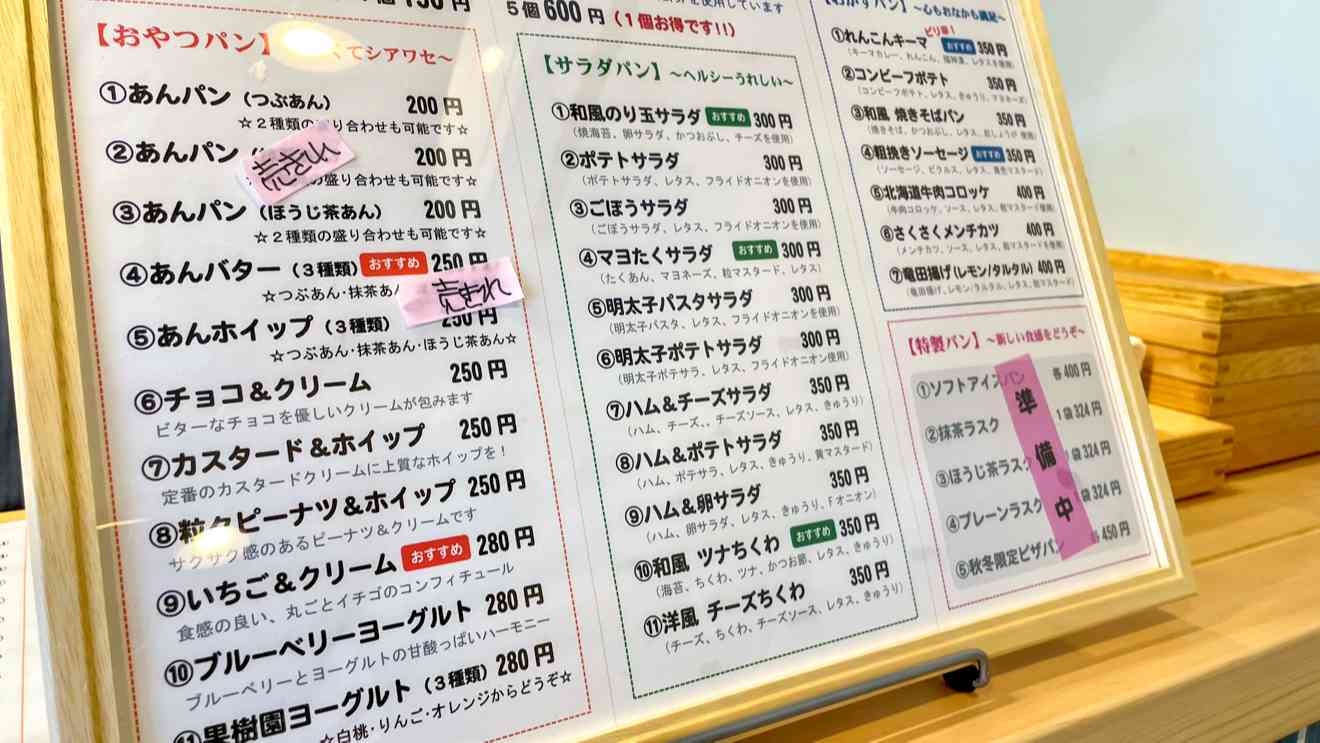 5個600円(1個お得です!!)
【おやつパン】
てシアワセ〜
①あんパン(つぶあん) 200円
☆2種類の盛り合わせも可能です☆
②あんパン 200円
売きれ
の盛り合わせも可能です☆
③あんパン(ほうじ茶あん) 200円
☆2種類の盛り合わせも可能です☆
④あんバター(3種類) おすすめ 250円
☆つぶあん・抹茶あん
売きれ
⑤あんホイップ(3種類) 250円
☆つぶあん・抹茶あん・ほうじ茶あん☆
⑥チョコ&クリーム 250円
ビターなチョコを優しいクリームが包みます
⑦カスタード&ホイップ 250円
定番のカスタードクリームに上質なホイップを!
⑧粒々ピーナツ&ホイップ 250円
サクサク感のあるピーナツ&クリームです
⑨いちご&クリーム おすすめ 280円
食感の良い、丸ごとイチゴのコンフィチュール
⑩ブルーベリーヨーグルト 280円
ブルーベリーとヨーグルトの甘酸っぱいハーモニー
⑪果樹園ヨーグルト(3種類) 280円
☆白桃・りんご・オレンジからどうぞ☆
【サラダパン】〜ヘルシーうれしい〜
①和風のり玉サラダ おすすめ 300円
(焼海苔、卵サラダ、かつおぶし、チーズを使用)
②ポテトサラダ 300円
(ポテトサラダ、レタス、フライドオニオンを使用)
③ごぼうサラダ 300円
(ごぼうサラダ、レタス、フライドオニオンを使用)
④マヨたくサラダ おすすめ 300円
(たくあん、マヨネーズ、粒マスタード、レタス)
⑤明太子パスタサラダ 300円
(明太子パスタ、レタス、フライドオニオンを使用)
⑥明太子ポテトサラダ 300円
(明太子ポテサラ、レタス、フライドオニオンを使用)
⑦ハム&チーズサラダ 350円
(ハム、チーズ、、チーズソース、レタス、きゅうり)
⑧ハム&ポテトサラダ 350円
(ハム、ポテサラ、レタス、きゅうり、黄マスタード)
⑨ハム&卵サラダ 350円
(ハム、卵サラダ、レタス、きゅうり、Fオニオン)
⑩和風 ツナちくわ おすすめ 350円
(海苔、ちくわ、ツナ、かつお節、レタス、きゅうり)
⑪洋風 チーズちくわ 350円
(チーズ、ちくわ、チーズソース、レタス、きゅうり)
【おかずパン】〜心もおなかも満足〜
ピリ辛!
①れんこんキーマ おすすめ 350円
(キーマカレー、れんこん、福神漬、レタスを使用)
②コンビーフポテト 350円
(コンビーフポテト、レタス、きゅうり、マヨネーズ)
③和風 焼きそばパン 350円
(焼きそば、かつおぶし、レタス、紅しょうが 使用)
④粗挽きソーセージ おすすめ 350円
(ソーセージ、ピクルス、レタス、黄色マスタード)
⑤北海道牛肉コロッケ 400円
(牛肉コロッケ、ソース、レタス、粒マスタード使用)
⑥さくさくメンチカツ 400円
(メンチカツ、ソース、レタス、粒マスタードを使用)
⑦竜田揚げ(レモン/タルタル) 400円
(竜田揚げ、レモン/タルタル、レタス、粒を使用)
【特製パン】〜新しい食感をどうぞ〜
①ソフトアイスパン 各400円
②抹茶ラスク 1袋324円
③ほうじ茶ラスク 1袋324円
④プレーンラスク 1袋324円
⑤秋冬限定ピザパン 各450円
準備中